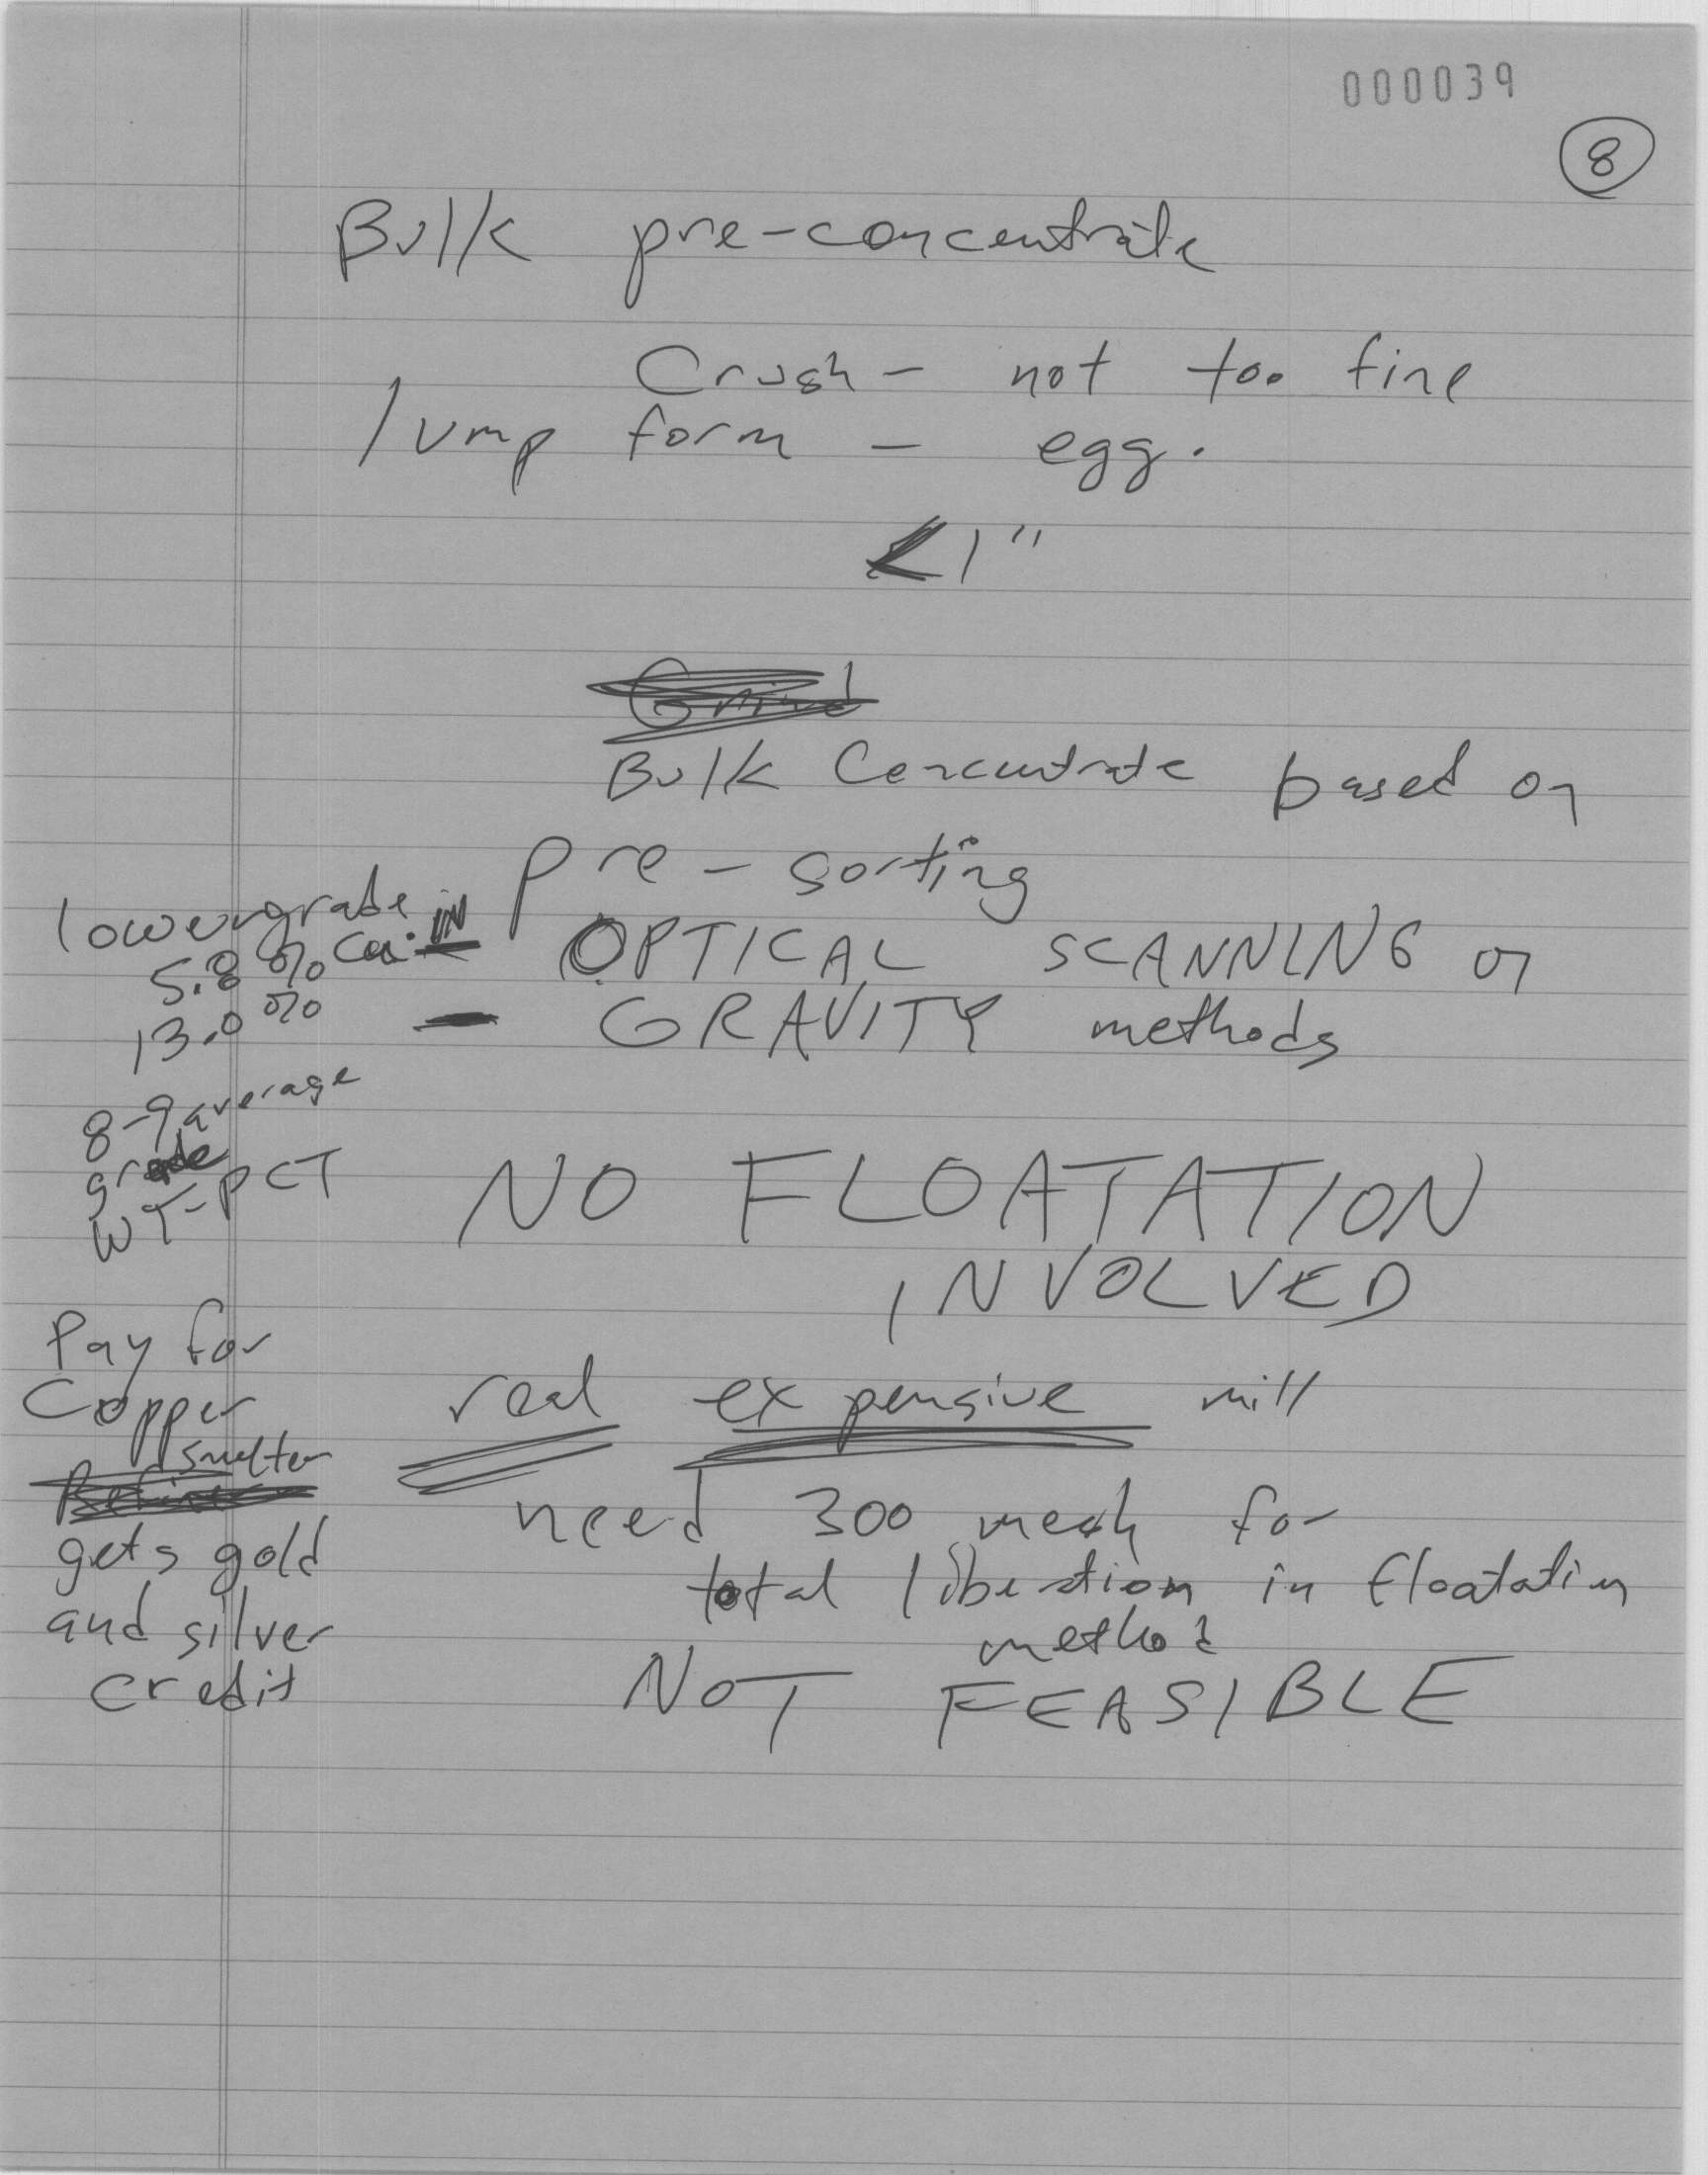 000039
8
Bulk pre-concentrate
Crush - not too fine
lump form - egg.
<1"
Grind
Bulk Concentrate based on
pre-sorting
OPTICAL SCANNING or
- GRAVITY methods
NO FLOATATION
INVOLVED
real expensive mill
need 300 mesh for
total liberation in floatation
method
NOT FEASIBLE
lower grade
5.8 % Cu. IN
13.0 %
8-9 average
grade
WT-PCT
Pay for
Copper
smelter
gets gold
and silver
credit